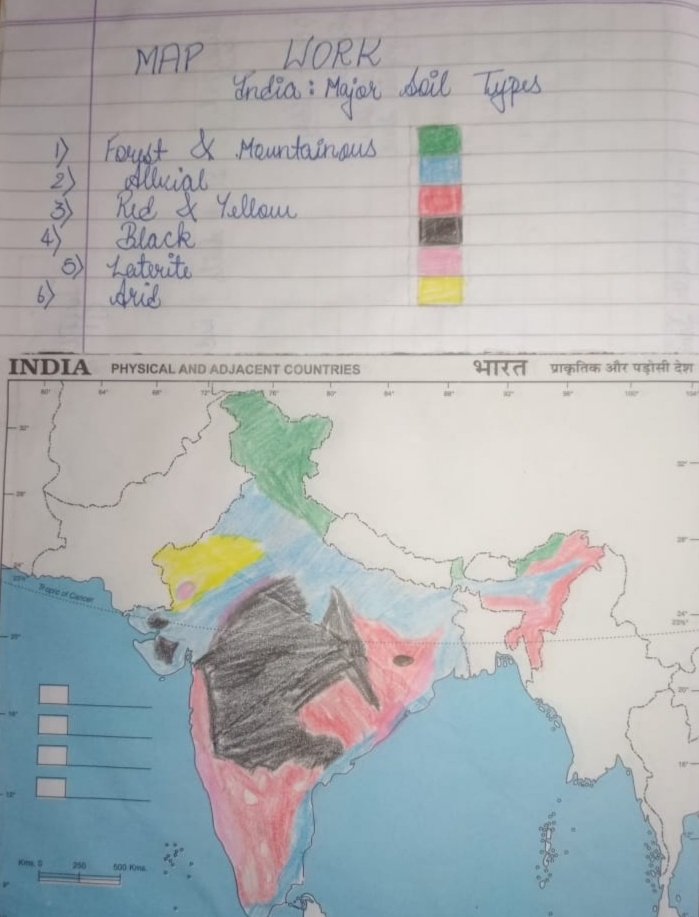 MAP WORK
India : Major Soil Types
1) Forest & Mountainous
2) Alluvial
3) Red & Yellow
4) Black
5) Laterite
6) Arid
INDIA PHYSICAL AND ADJACENT COUNTRIES भारत प्राकृतिक और पड़ोसी देश
72° 76° 80° 84° 88° 92° 96° 100° 104°
32°
28°
24°
Tropic of Cancer
20°
16°
12°
8°
32°
28°
24°
23½°
20°
16°
Kms. 0 250 500 Kms.